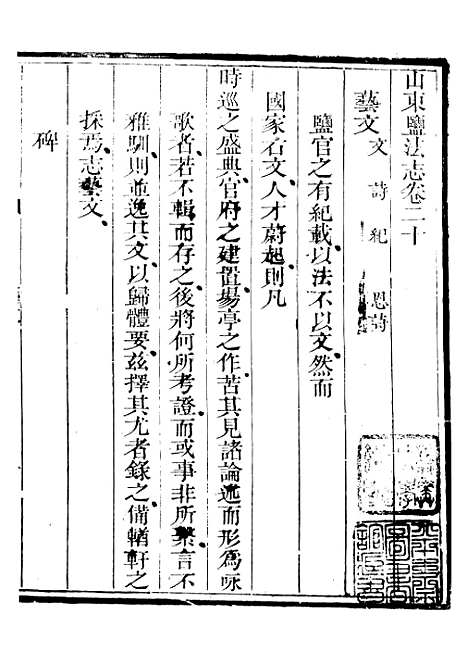 山東鹽法志卷二十
藝文 文 詩 紀 恩詩
鹽官之有紀載以法不以文然而
國家右文人才蔚起則凡
時巡之盛典官府之建置場亭之作苦其見諸論述而形為咏
歌者若不輯而存之後將何所考證而或事非所繫言不
雅馴則並逸其文以歸體要茲擇其尤者錄之備輶軒之
採焉志藝文
碑